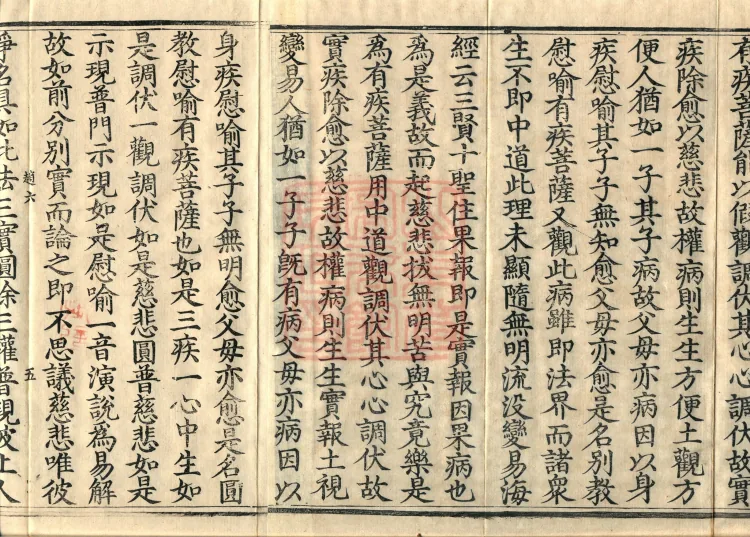 有疾菩薩能以假觀調伏其心心調伏故實
疾除愈以慈悲故權病則生生方便土觀方
便人猶如一子其子病故父母亦病因以身
疾慰喻其子子無知愈父母亦愈是名別教
慰喻有疾菩薩又觀此病雖即法界而諸衆
生不即中道此理未顯隨無明流没變易海
經云三賢十聖住果報即是實報因果病也
爲是義故而起慈悲拔無明苦與究竟樂是
爲有疾菩薩用中道觀調伏其心心調伏故
實疾除愈以慈悲故權病則生生實報土視
變易人猶如一子子旣有病父母亦病因以
身疾慰喻其子子無明愈父母亦愈是名圓
教慰喻有疾菩薩也如是三疾一心中生如
是調伏一觀調伏如是慈悲圓普慈悲如是
示現普門示現如是慰喻一音演說爲易解
故如前分別實而論之即不思議慈悲唯彼
趙六 五
淨名具如此法三實圓除三權普現彼上人